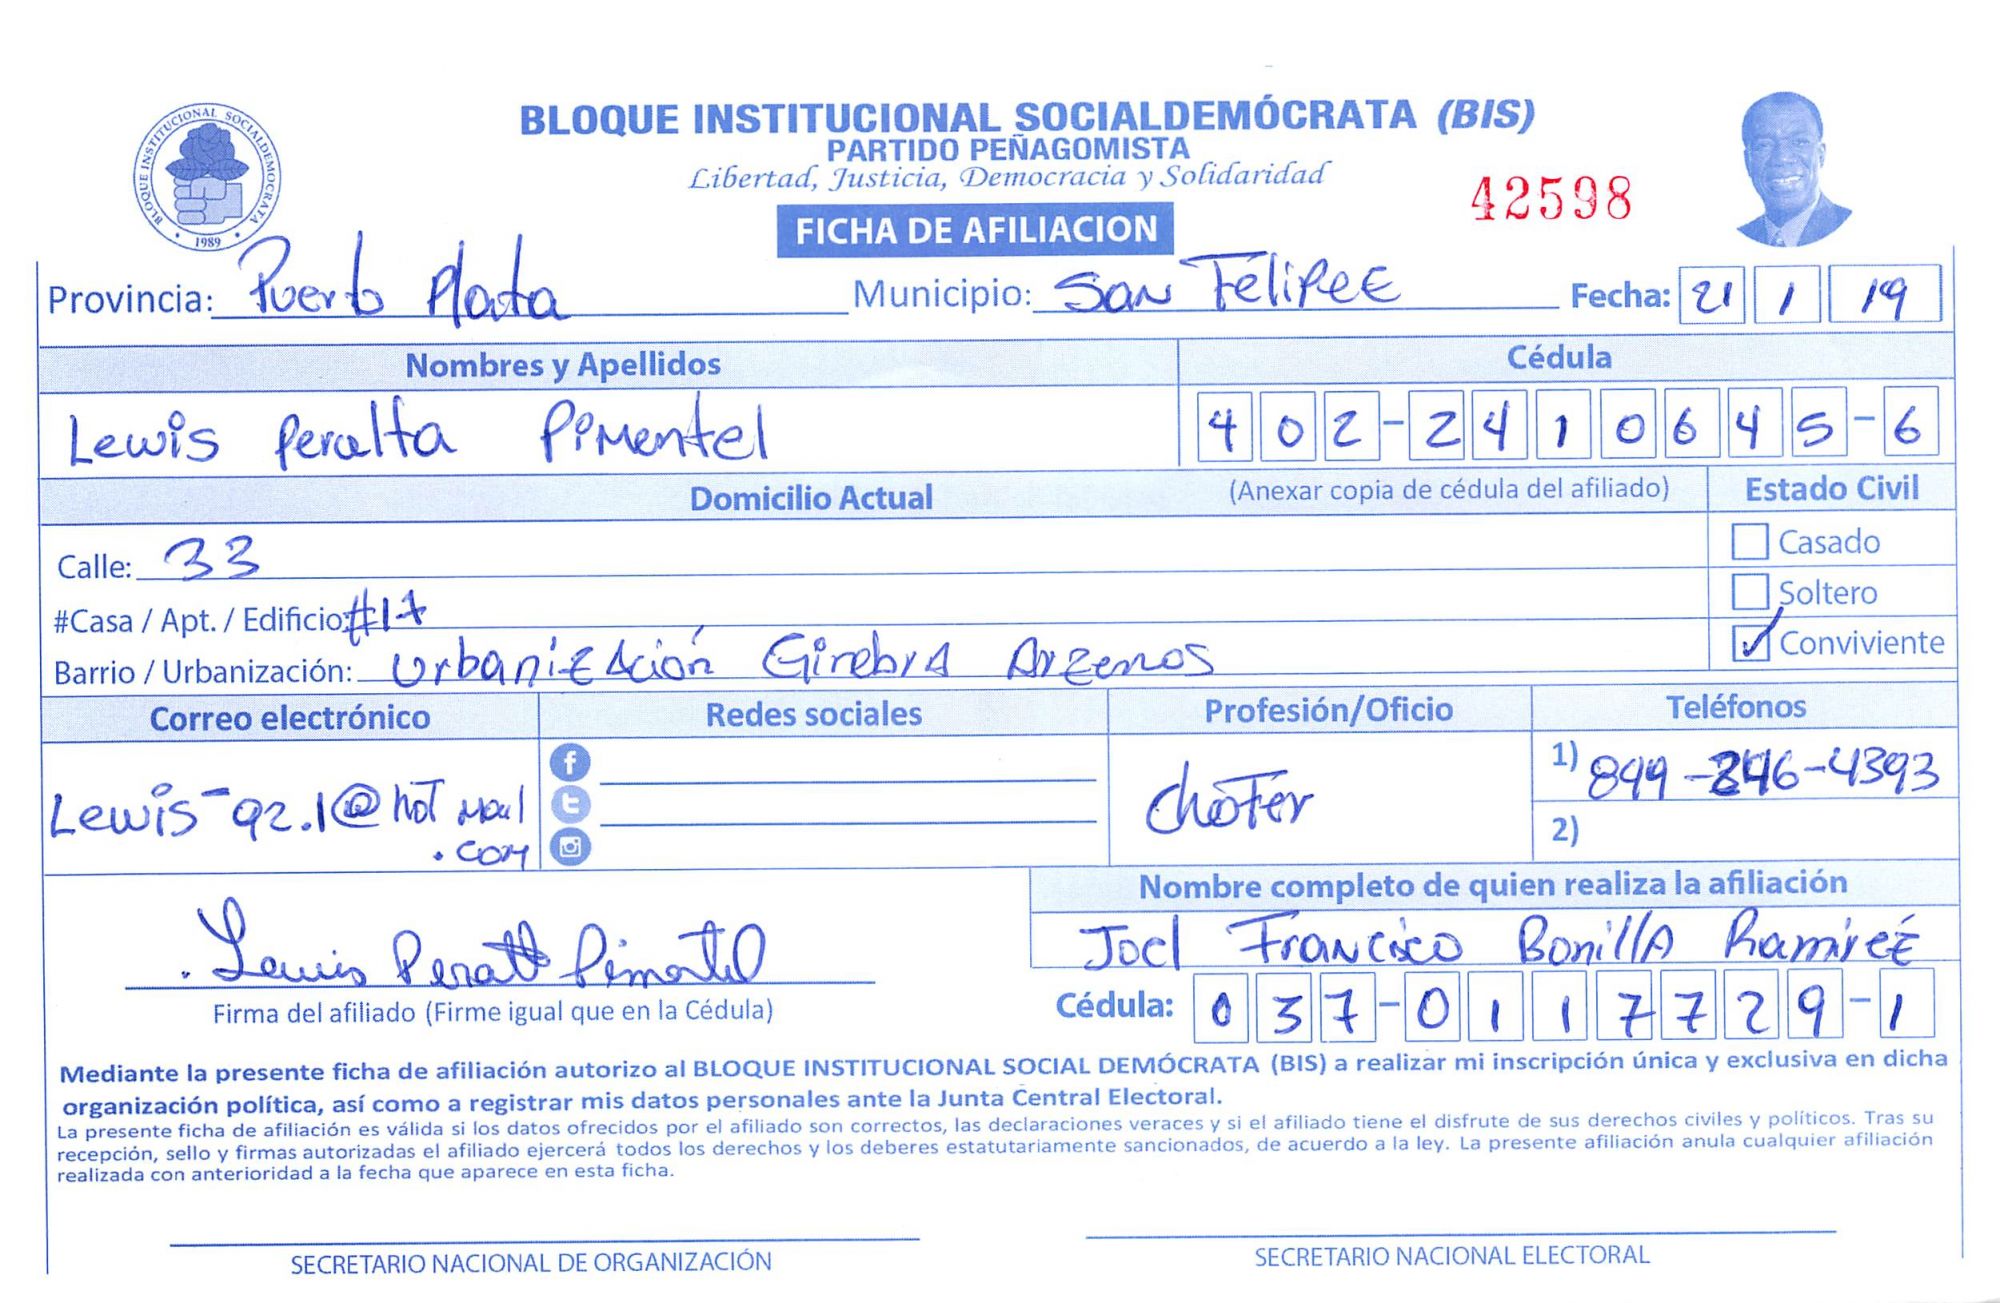 BLOQUE INSTITUCIONAL SOCIALDEMÓCRATA 1989
BLOQUE INSTITUCIONAL SOCIALDEMÓCRATA (BIS)
PARTIDO PEÑAGOMISTA
Libertad, Justicia, Democracia y Solidaridad
42598
FICHA DE AFILIACION
Provincia: Puerto Plata Municipio: San Félipee Fecha: 21 1 19
Nombres y Apellidos Cédula
Lewis Peralta Pimentel 402-2410645-6
Domicilio Actual (Anexar copia de cédula del afiliado) Estado Civil
Calle: 33 Casado
#Casa / Apt. / Edificio: #17 Soltero
Barrio / Urbanización: Urbanización Ginebra Arzenos Conviviente
Correo electrónico Redes sociales Profesión/Oficio Teléfonos
Lewis-92.1@hotmail Chofer 1) 849-846-4393
.com 2)
Nombre completo de quien realiza la afiliación
Lewis Peralta Pimentel Joel Francisco Bonilla Ramireé
Firma del afiliado (Firme igual que en la Cédula) Cédula: 037-0117729-1
Mediante la presente ficha de afiliación autorizo al BLOQUE INSTITUCIONAL SOCIAL DEMÓCRATA (BIS) a realizar mi inscripción única y exclusiva en dicha
organización política, así como a registrar mis datos personales ante la Junta Central Electoral.
La presente ficha de afiliación es válida si los datos ofrecidos por el afiliado son correctos, las declaraciones veraces y si el afiliado tiene el disfrute de sus derechos civiles y políticos. Tras su
recepción, sello y firmas autorizadas el afiliado ejercerá todos los derechos y los deberes estatutariamente sancionados, de acuerdo a la ley. La presente afiliación anula cualquier afiliación
realizada con anterioridad a la fecha que aparece en esta ficha.
SECRETARIO NACIONAL DE ORGANIZACIÓN SECRETARIO NACIONAL ELECTORAL